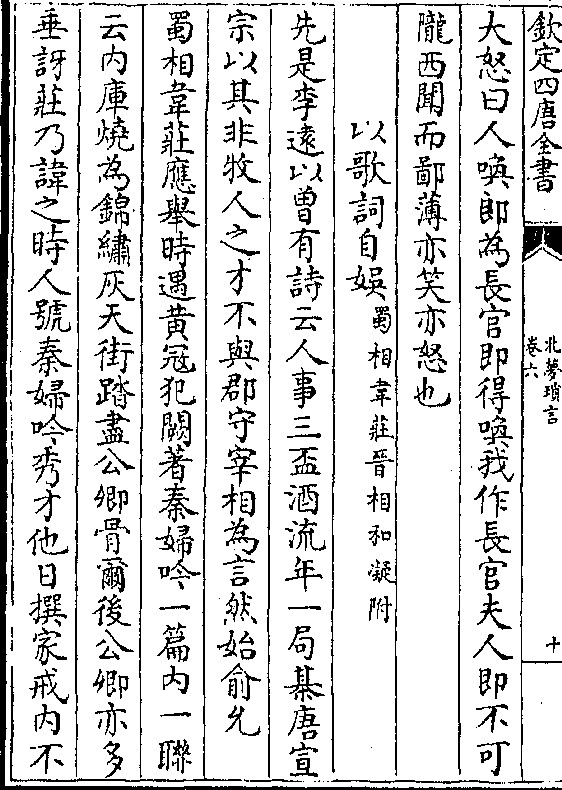 欽定四庫全書
北夢瑣言
卷六
十
大怒曰人喚即為長官即得喚我作長官夫人即不可
隴西聞而鄙薄亦笑亦怒也
以歌詞自娛蜀相韋莊晉相和凝附
先是李遠以曾有詩云人事三盃酒流年一局棊唐宣
宗以其非牧人之才不與郡守宰相為言然始俞允
蜀相韋莊應舉時遇黄冦犯闕著秦婦吟一篇内一聯
云内庫燒為錦繡灰天街踏盡公卿骨爾後公卿亦多
垂訝莊乃諱之時人號秦婦吟秀才他日撰家戒内不